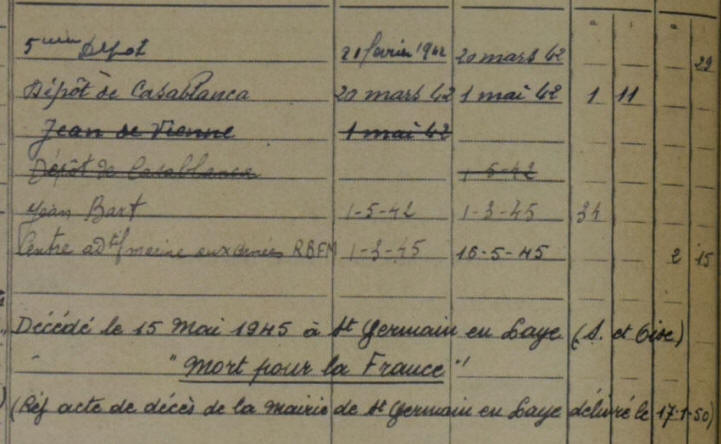 5ème Dépôt 21 février 1942 20 mars 42 29
Dépôt de Casablanca 20 mars 42 1 mai 42 1 11
Jean de Vienne 1 mai 42
Dépôt de Casablanca 1-5-42
Jean Bart 1-5-42 1-3-45 34
Centre adtf marine RBFM 1-3-45 16-5-45 2 15
Décédé le 15 Mai 1945 à St Germain en Laye (S. et Oise)
"Mort pour la France"
(Réf acte de décès de la Mairie de St Germain en Laye délivré le 17-1-50)